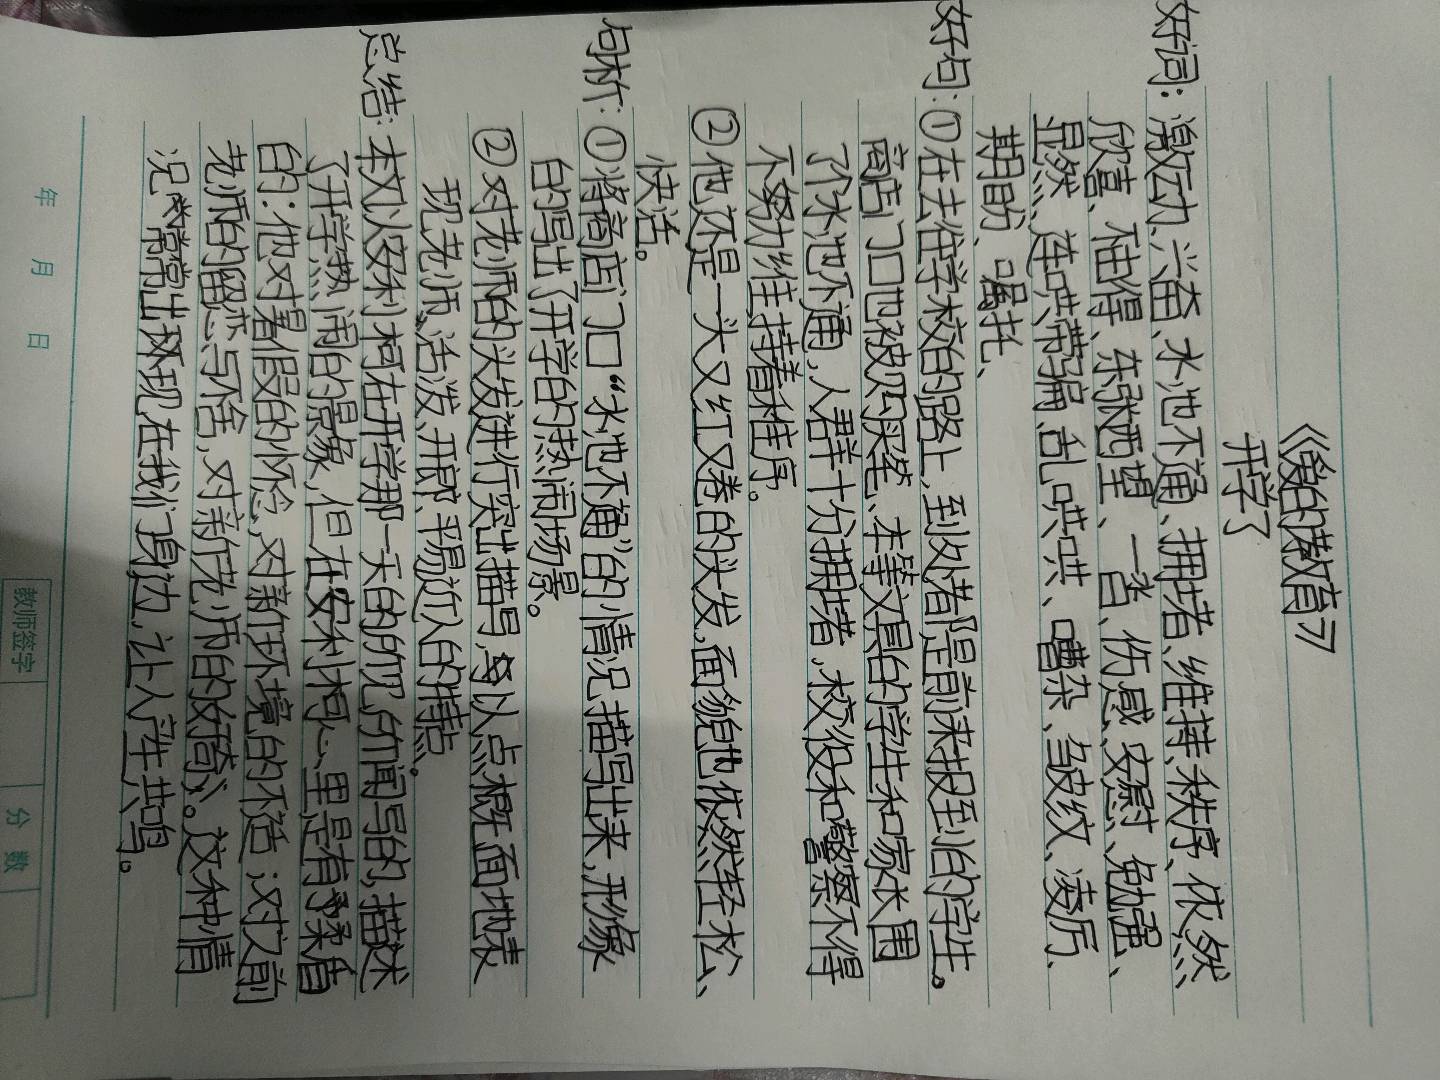 《爱的教育》
开学了
好词：激动、兴奋、水泄不通、拥堵、维持、秩序、依然、
欣喜、值得、东张西望、一沓、伤感、安慰、勉强、
显然、连哄带骗、乱哄哄、嘈杂、皱纹、凌厉、
期盼、嘱托、
好句：①在去往学校的路上，到处都是前来报到的学生。
商店门口也被买笔、本等文具的学生和家长围
了个水泄不通，人群十分拥堵，校役和警察不得
不努力维持着秩序。
②他还是一头又红又卷的头发，面貌也依然轻松、
快活。
句析：①将商店门口“水泄不通”的情况描写出来，形象
的写出了开学的热闹场景。
②对老师的头发进行突出描写，多以点概面地表
现老师活泼、开朗、平易近人的特点。
总结：本文以安利柯在开学那一天的所见所闻写的，描述
了开学热闹的景象，但在安利柯心里是有矛盾
的：他对暑假的怀念，对新环境的不适；对以前
老师的留恋与不舍，对新老师的好奇。这种情
况常常出现在我们身边，让人产生共鸣。
年 月 日
教师签字
分数